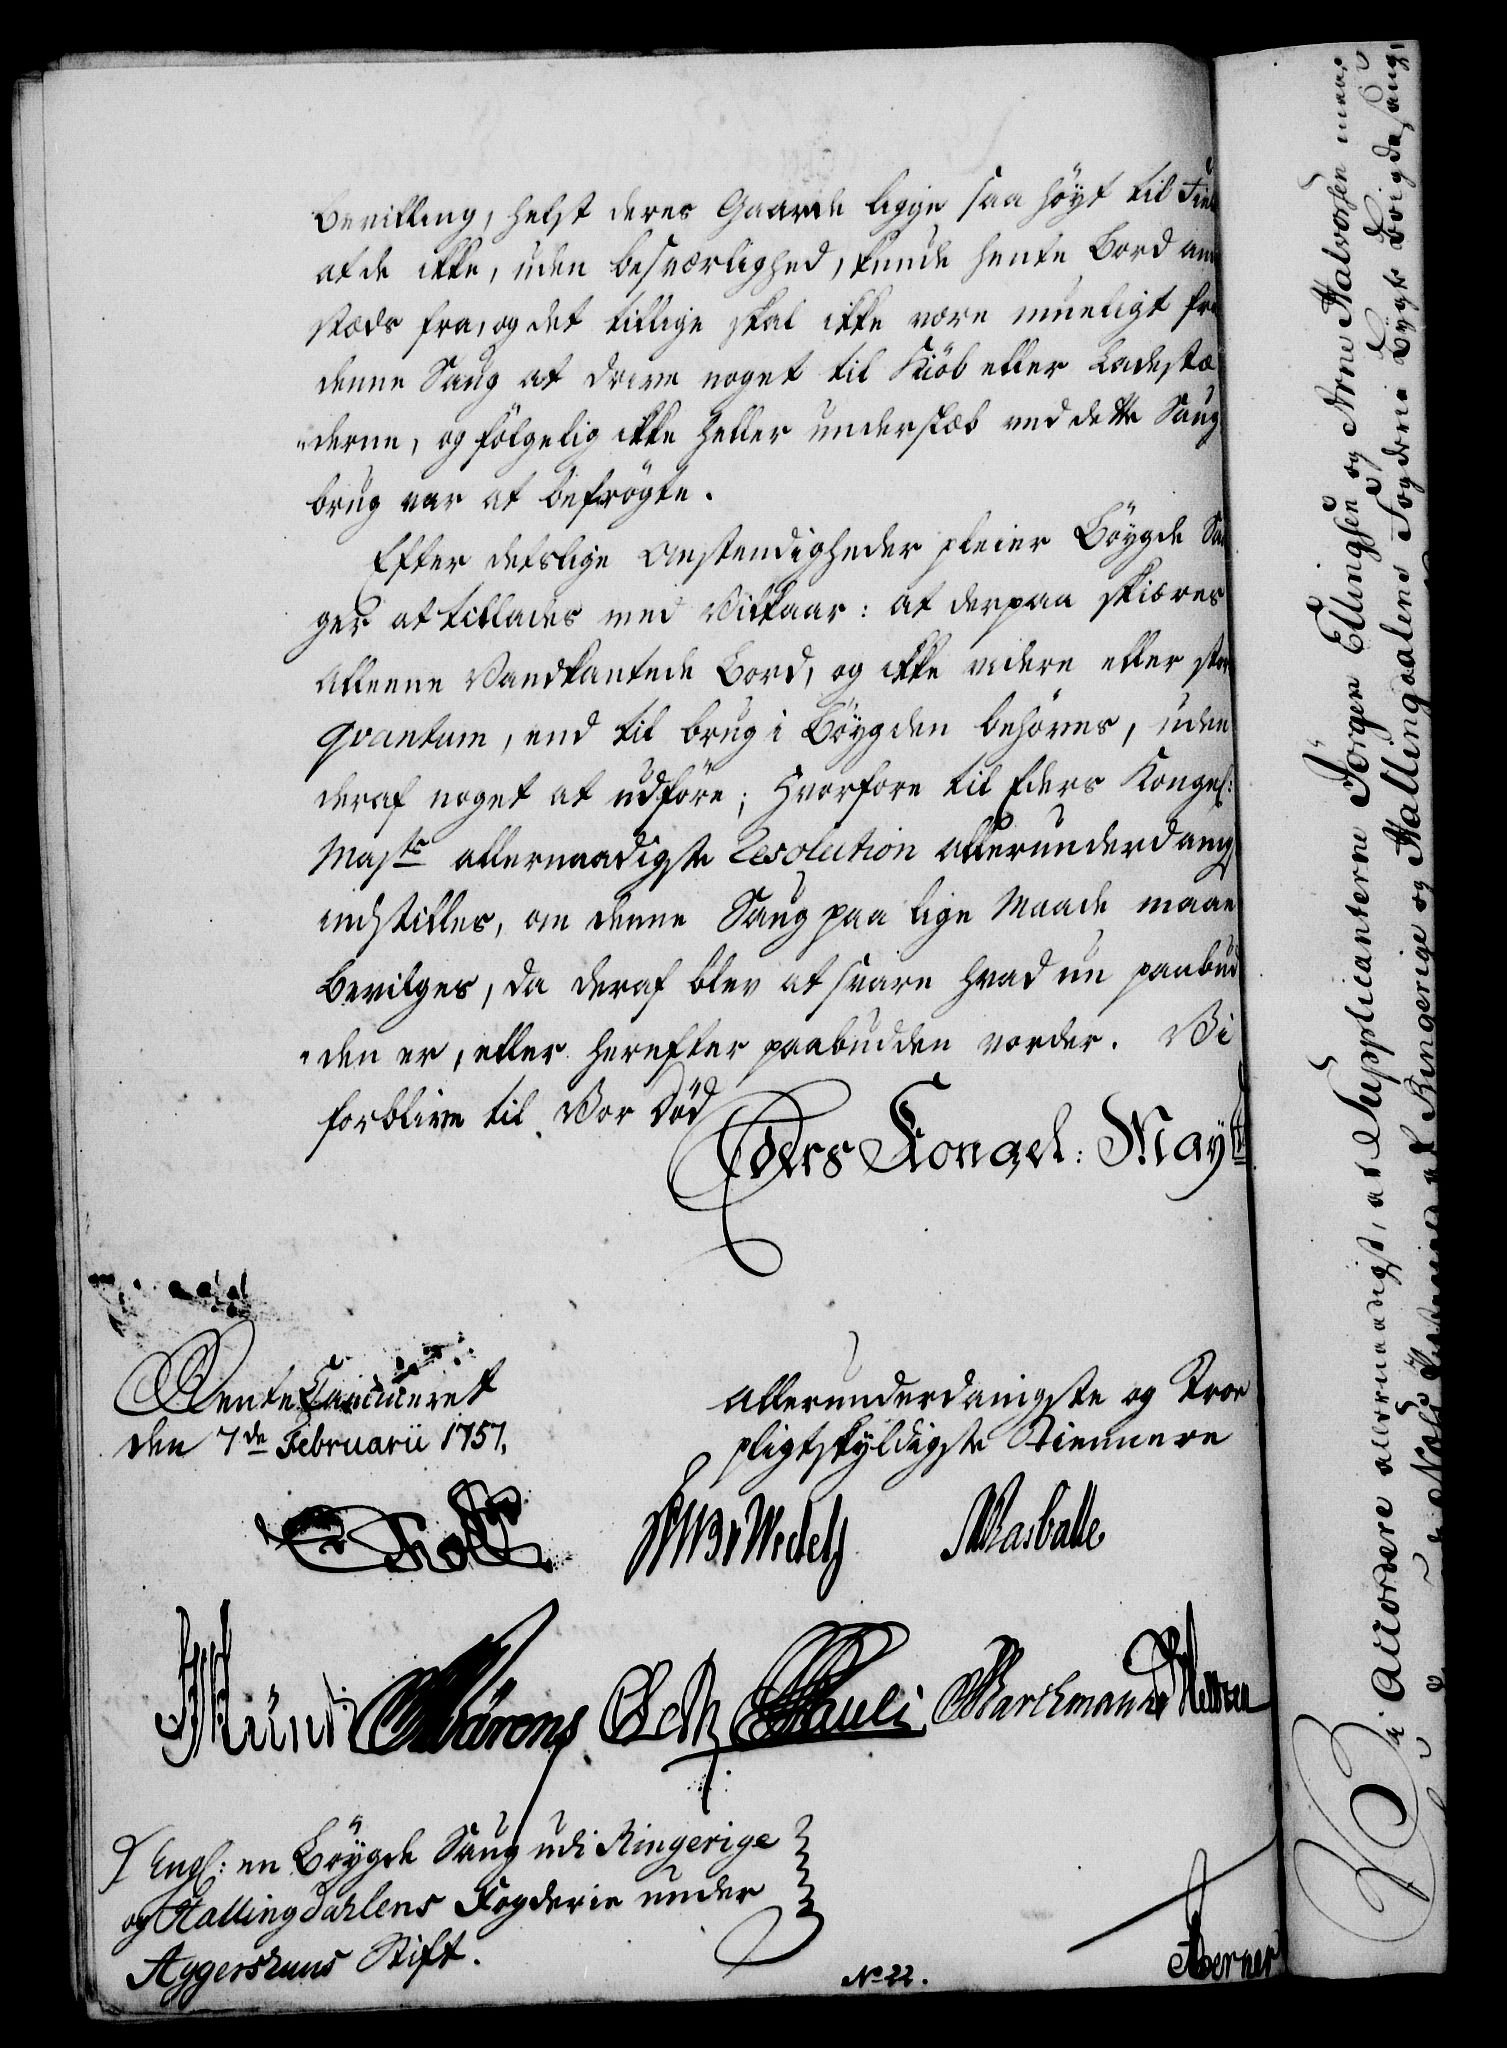 Bevilling, helst deres Gaarde ligge saa høyt til
at de ikke, uden besværlighed, kunde hente Bord
stæds fra, og det tillige skal ikke være mueligt fra
denne Saug at drive noget til Kiöb eller Ladestæ
derne, og fölgelig ikke heller underslæb ved dette Saug
brug var at befrögte.
Efter deslige Omstendigheder pleier Böygde Sau
ger at tillades med Vilkaar: at derpaa skiæres
alleene Vandkantede Bord, og ikke videre eller
qvantum, end til brug i Böygden behöves, uden
deraf noget at udföre; Hvorfore til Eders Kongel:
Majts allernaadigste Resolution allerunderdanigst
indstilles, om denne Saug paa lige Maade maae
bevilges, da deraf blev at svare hvad nu paabud
den er, eller herefter paabudden vorder. Vi
forblive til Vor Död
Eders Kongel: Mayts
Rente Cammeret
den 7de Februarii 1757.
allerunderdanigste og Troe
pligtskyldigste Tiennere
Holst
Wedel
Rasballe
Barchmann
Angl: en Böygde Saug udi Ringerige
og Hallingdahlens Fogderie under
Aggershuus Stift.
No 22.
Berner
Vi accordere allernaadigst, at Supplicanterne Jörger Ellingsen og Arne Halvorsen maae
Ringerige og Hallingdalens Fogderie bÿge Böigde Saug,